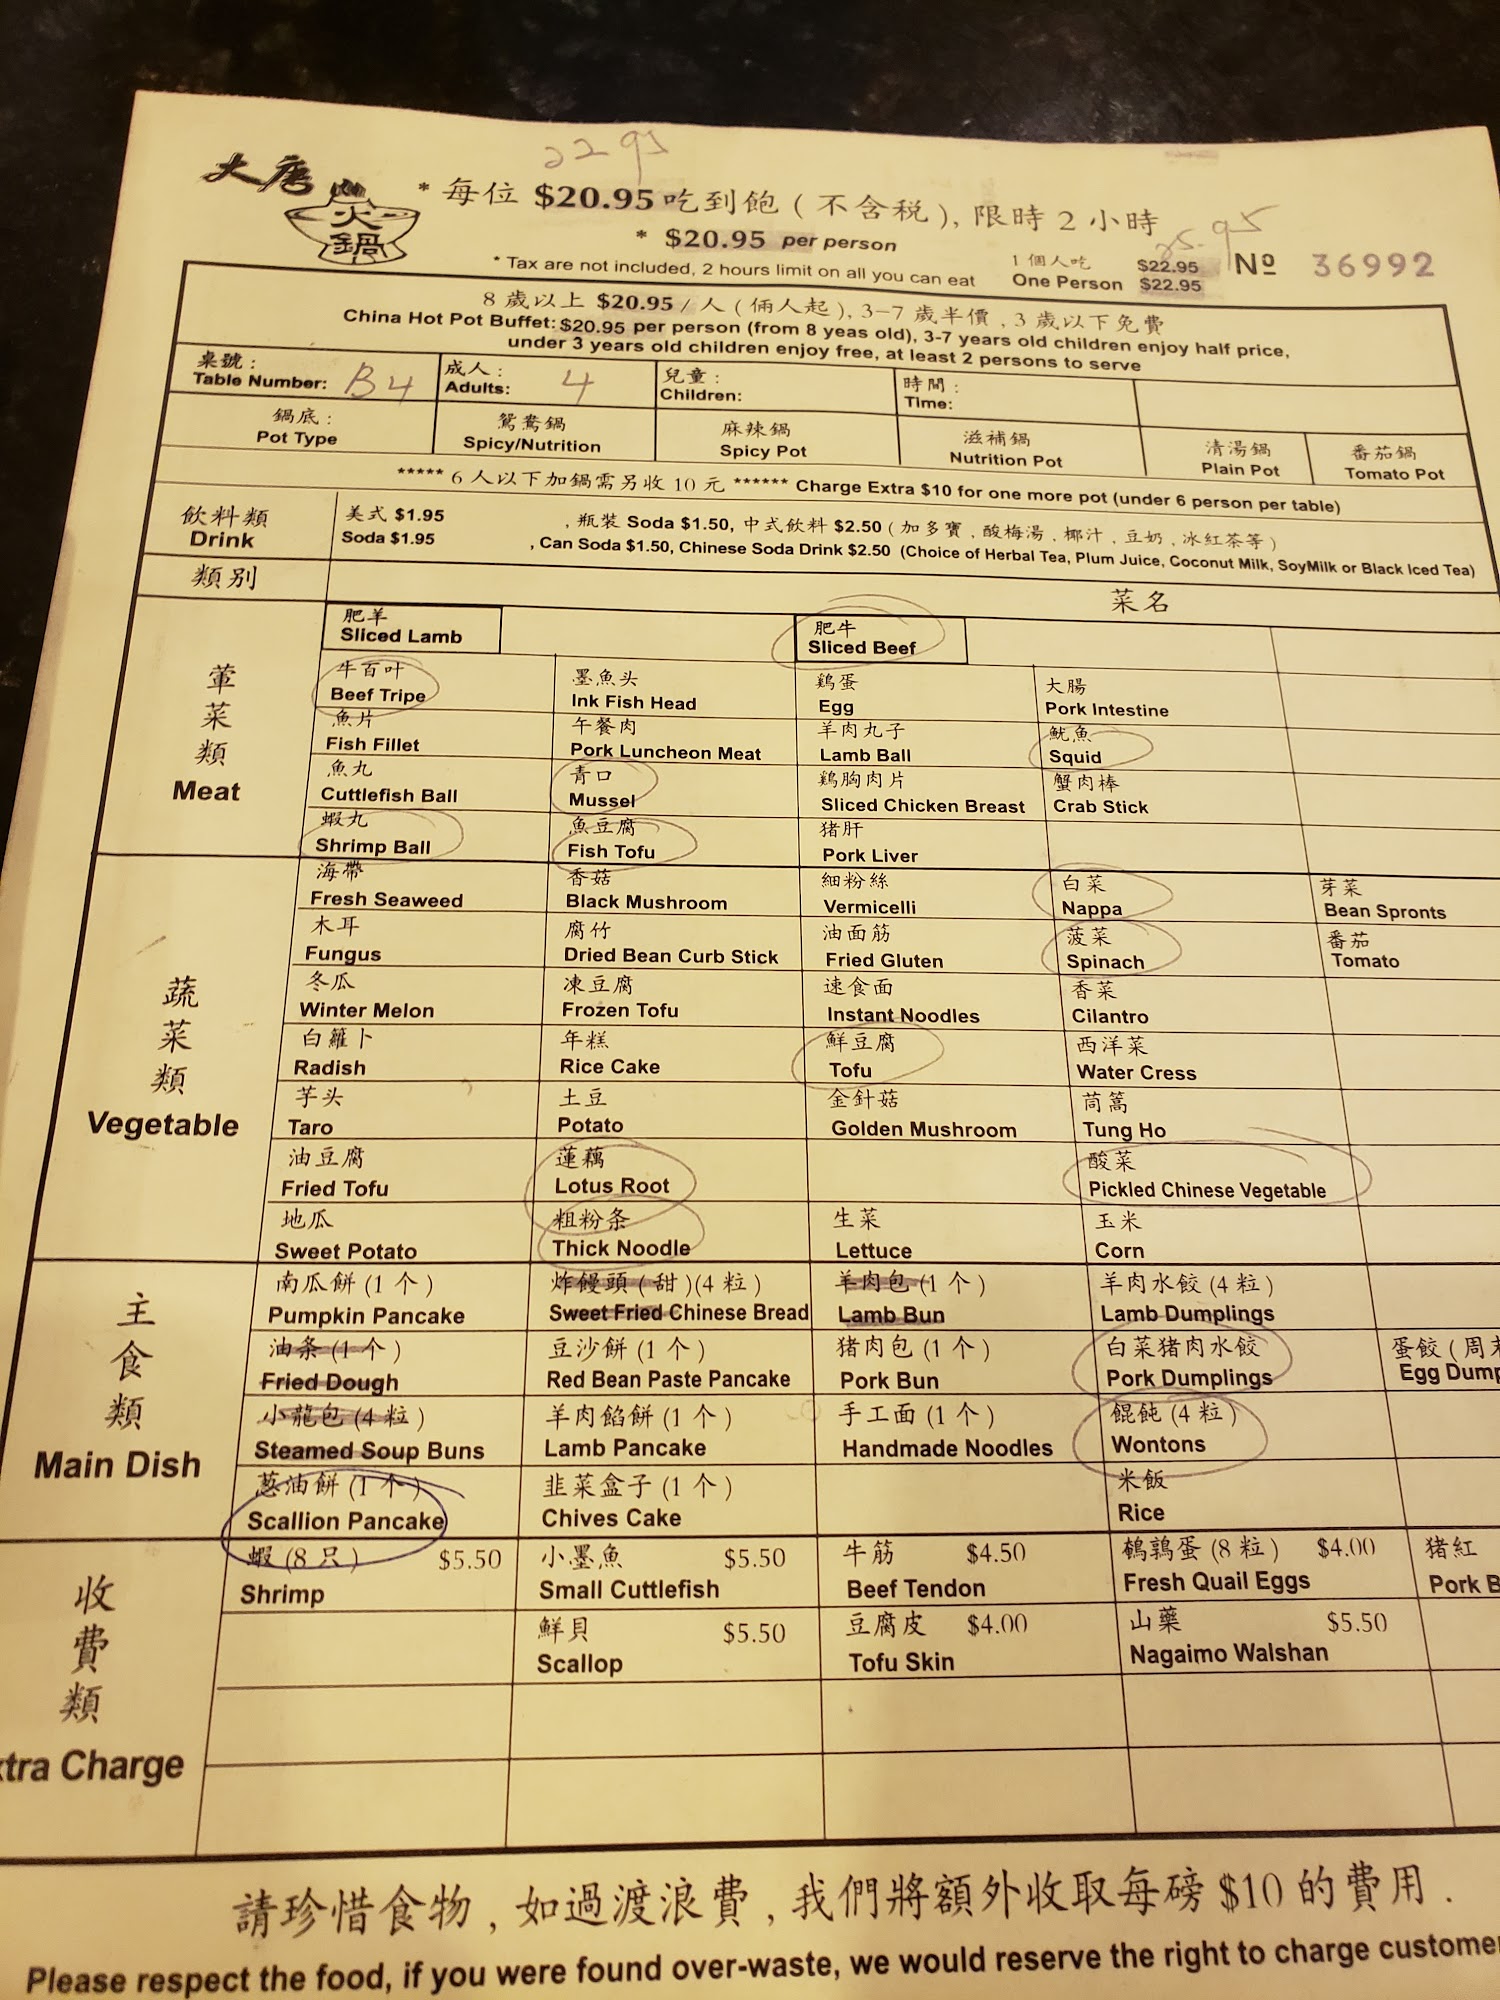 22 95
大唐
火鍋
* 每位 $20.95 吃到飽 ( 不含税 ), 限時 2 小時
* $20.95 per person
25.95
* Tax are not included, 2 hours limit on all you can eat
1 個人吃 $22.95
One Person $22.95
Nº 36992
8 歲以上 $20.95 / 人 ( 倆人起 ), 3-7 歲半價 , 3 歲以下免費
China Hot Pot Buffet: $20.95 per person (from 8 yeas old), 3-7 years old children enjoy half price,
under 3 years old children enjoy free, at least 2 persons to serve
桌號 : 成人 : 兒童 : 時間 :
Table Number: B4 Adults: 4 Children: Time:
鍋底 : 鴛鴦鍋 麻辣鍋 滋補鍋 清湯鍋 番茄鍋
Pot Type Spicy/Nutrition Spicy Pot Nutrition Pot Plain Pot Tomato Pot
***** 6 人以下加鍋需另收 10 元 ****** Charge Extra $10 for one more pot (under 6 person per table)
飲料類 美式 $1.95 , 瓶裝 Soda $1.50, 中式飲料 $2.50 ( 加多寶 , 酸梅湯 , 椰汁 , 豆奶 , 冰紅茶等 )
Drink Soda $1.95 , Can Soda $1.50, Chinese Soda Drink $2.50 (Choice of Herbal Tea, Plum Juice, Coconut Milk, SoyMilk or Black Iced Tea)
類别 菜名
葷菜類
Meat
肥羊 肥牛
Sliced Lamb Sliced Beef
牛百叶 墨魚头 鷄蛋 大腸
Beef Tripe Ink Fish Head Egg Pork Intestine
魚片 午餐肉 羊肉丸子 魷魚
Fish Fillet Pork Luncheon Meat Lamb Ball Squid
魚丸 青口 鷄胸肉片 蟹肉棒
Cuttlefish Ball Mussel Sliced Chicken Breast Crab Stick
蝦丸 魚豆腐 猪肝
Shrimp Ball Fish Tofu Pork Liver
蔬菜類
Vegetable
海帶 香菇 細粉絲 白菜 芽菜
Fresh Seaweed Black Mushroom Vermicelli Nappa Bean Spronts
木耳 腐竹 油面筋 菠菜 番茄
Fungus Dried Bean Curb Stick Fried Gluten Spinach Tomato
冬瓜 凍豆腐 速食面 香菜
Winter Melon Frozen Tofu Instant Noodles Cilantro
白籮卜 年糕 鮮豆腐 西洋菜
Radish Rice Cake Tofu Water Cress
芋头 土豆 金針菇 茼蒿
Taro Potato Golden Mushroom Tung Ho
油豆腐 蓮藕 酸菜
Fried Tofu Lotus Root Pickled Chinese Vegetable
地瓜 粗粉条 生菜 玉米
Sweet Potato Thick Noodle Lettuce Corn
主食類
Main Dish
南瓜餅 (1 个 ) 炸饅頭 ( 甜 )(4 粒 ) 羊肉包 (1 个 ) 羊肉水餃 (4 粒 )
Pumpkin Pancake Sweet Fried Chinese Bread Lamb Bun Lamb Dumplings
油条 (1 个 ) 豆沙餅 (1 个 ) 猪肉包 (1 个 ) 白菜猪肉水餃 蛋餃 ( 周末
Fried Dough Red Bean Paste Pancake Pork Bun Pork Dumplings Egg Dump
小龍包 (4 粒 ) 羊肉餡餅 (1 个 ) 手工面 (1 个 ) 餛飩 (4 粒 )
Steamed Soup Buns Lamb Pancake Handmade Noodles Wontons
葱油餅 (1 个 ) 韭菜盒子 (1 个 ) 米飯
Scallion Pancake Chives Cake Rice
收費類
xtra Charge
蝦 (8 只 ) $5.50 小墨魚 $5.50 牛筋 $4.50 鵪鶉蛋 (8 粒 ) $4.00 猪紅
Shrimp Small Cuttlefish Beef Tendon Fresh Quail Eggs Pork B
鮮貝 $5.50 豆腐皮 $4.00 山藥 $5.50
Scallop Tofu Skin Nagaimo Walshan
請珍惜食物 , 如過渡浪費 , 我們將額外收取每磅 $10 的費用 .
Please respect the food, if you were found over-waste, we would reserve the right to charge custome